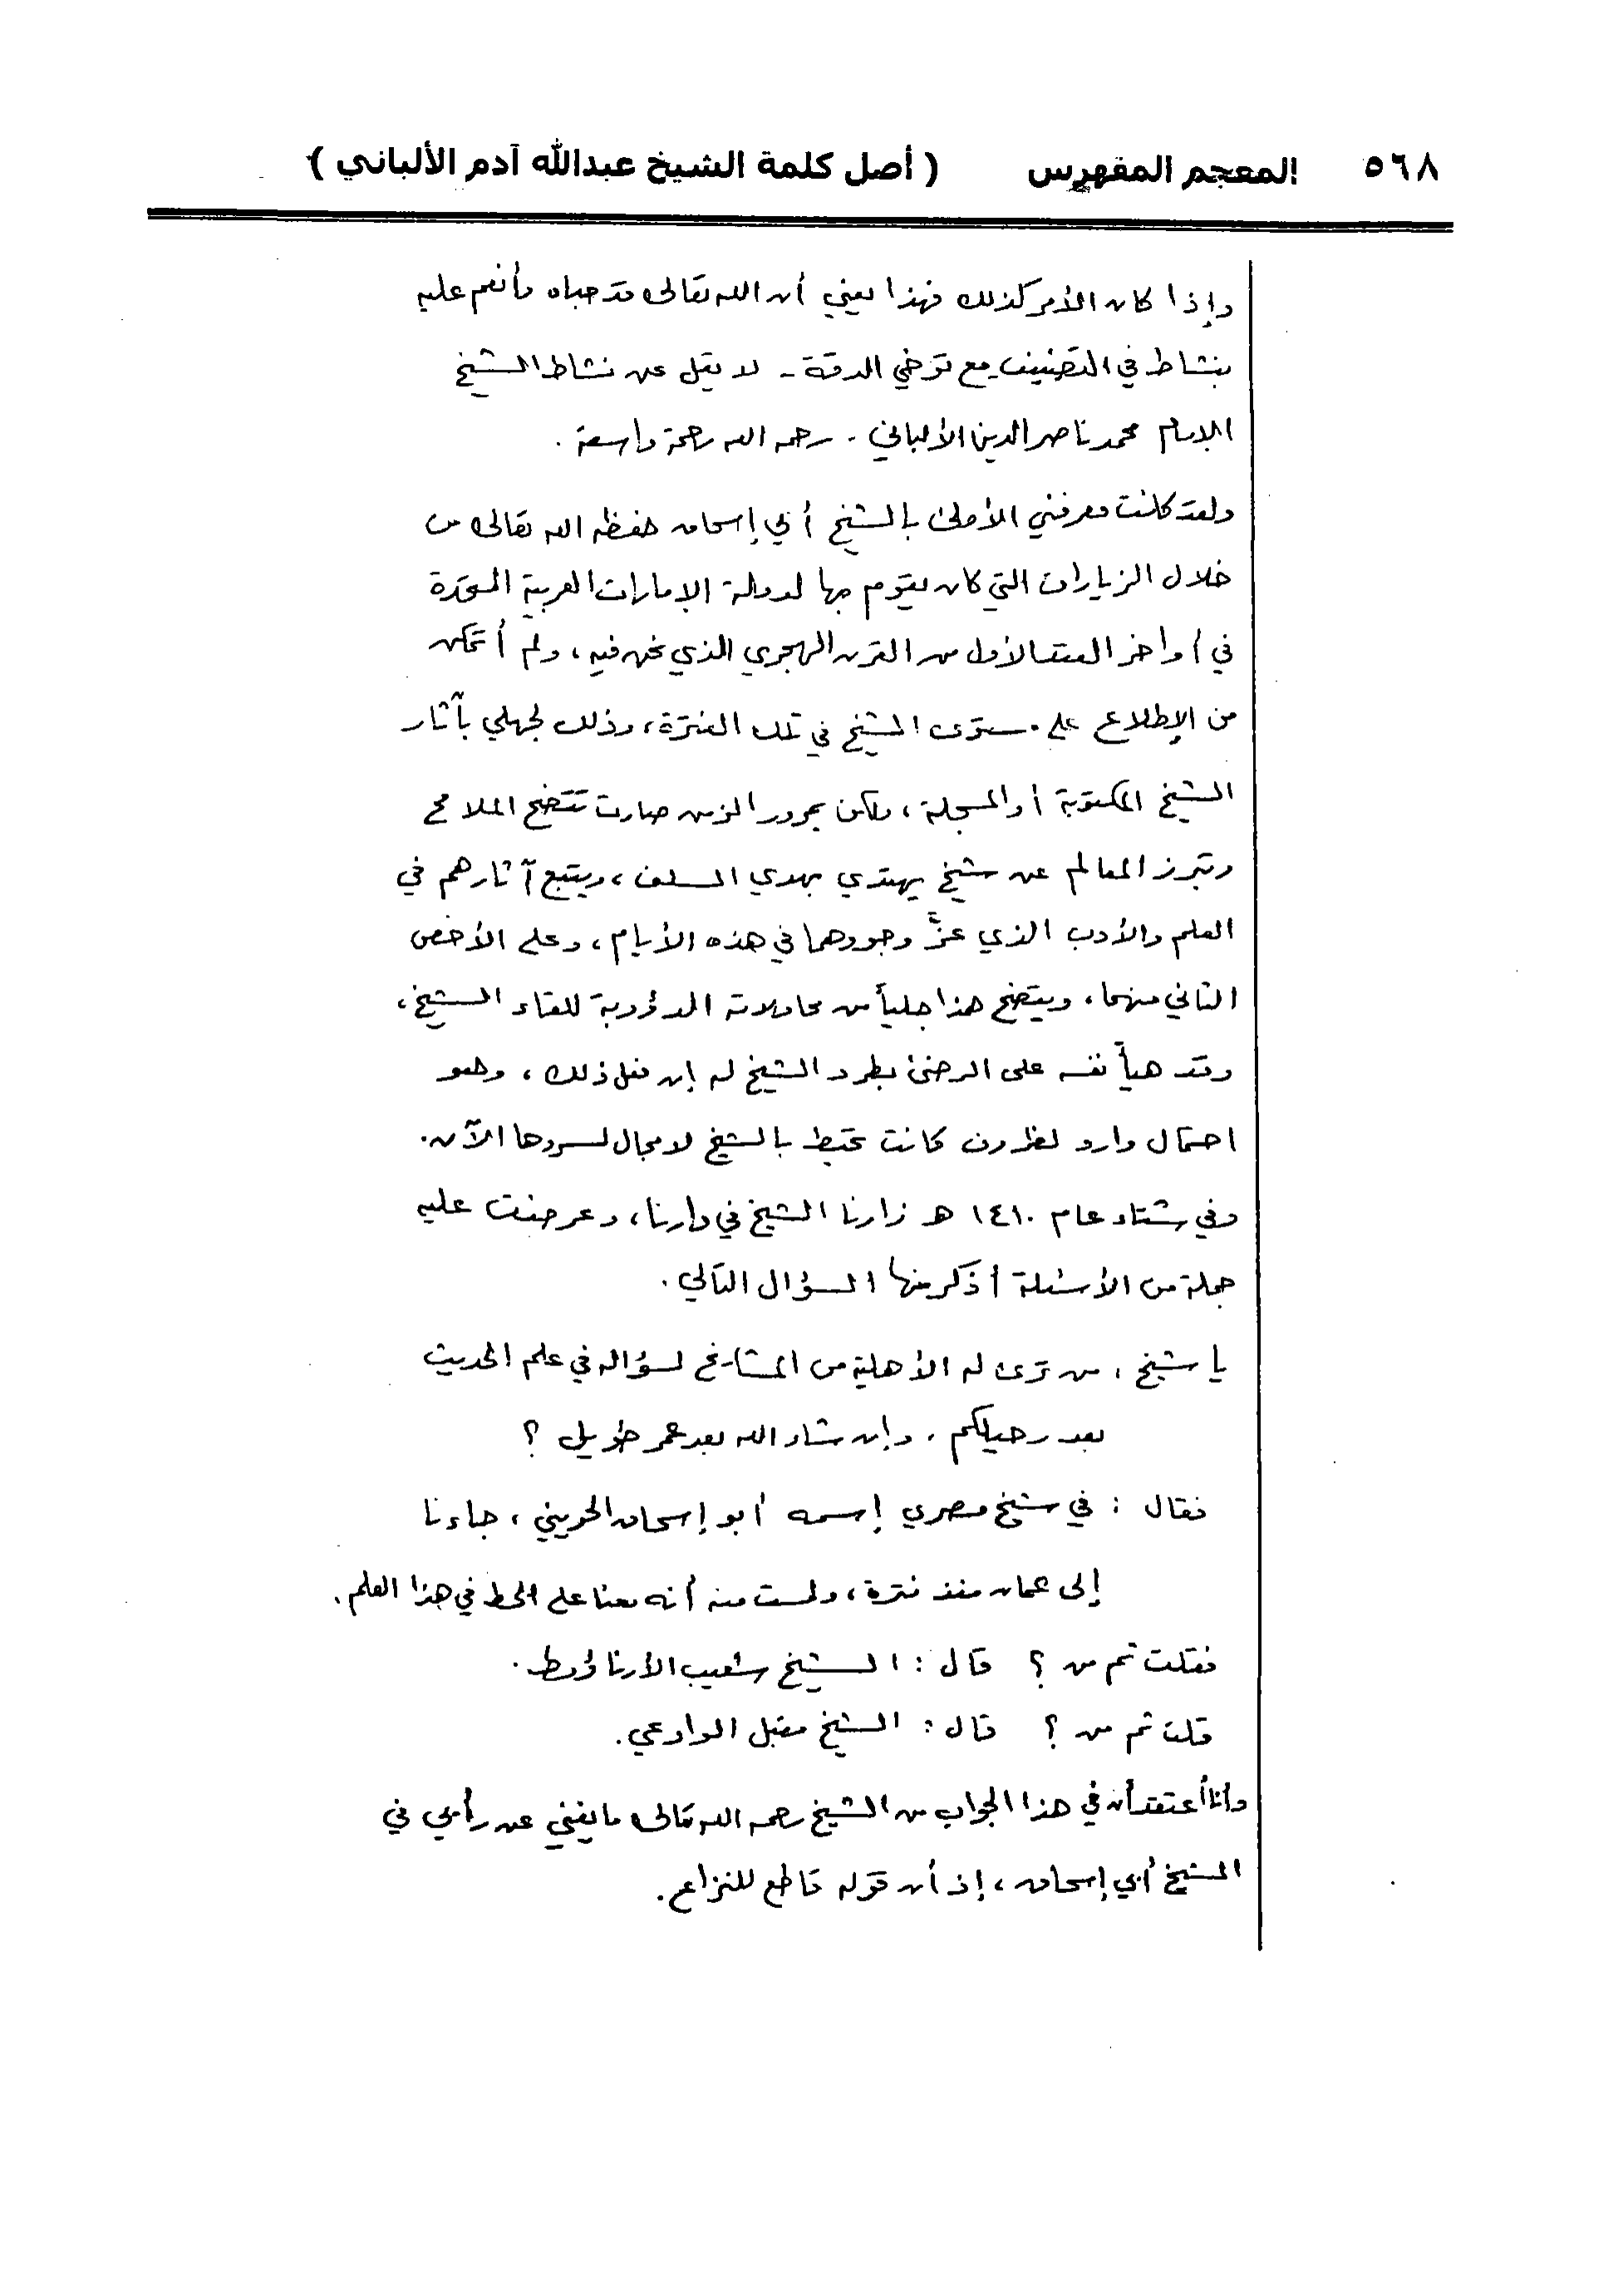 ٥٦٨ المعجم المفهرس ( أصل كلمة الشيخ عبدالله آدم الألباني )
وإذا كان الأمر كذلك فهذا يعني أن الله تعالى قد حباه وأنعم عليه
بنشاط في التصنيف - مع توخي الدقة - لا يقل عن نشاط الشيخ
الإمام محمد ناصر الدين الألباني - رحمه الله رحمة واسعة .
ولقد كانت معرفتي الأولى بالشيخ أبي إسحاق حفظه الله تعالى من
خلال الزيارات التي كان يقوم بها لدولة الإمارات العربية المتحدة
في أواخر العقد الأول من القرن الهجري الذي نحن فيه ، ولم أتمكن
من الإطلاع على مستوى الشيخ في تلك الفترة ، وذلك لجهلي بآثار
الشيخ المكتوبة أو المسجلة ، ولكن بمرور الزمن صارت تتضح الملامح
وتبرز المعالم عن شيخ يهتدي بهدي السلف ، ويتبع آثارهم في
العلم والأدب الذي عزَّ وجودهما في هذه الأيام ، وعلى الأخص
الثاني منهما ، ويتضح هذا جلياً من محاولاته الدؤوبة للقاء الشيخ ،
وقد هيأ نفسه على الرضى بطرد الشيخ له إن فعل ذلك ، وهو
احتمال وارد لظروف كانت تحيط بالشيخ لا مجال لسردها الآن .
وفي شتاء عام ١٤١٠ هـ زارنا الشيخ في دارنا ، وعرضت عليه
جملة من الأسئلة أذكر منها السؤال التالي .
يا شيخ ، من ترى له الأهلية من المشايخ لسؤاله في علم الحديث
بعد رحيلكم ، وإن شاء الله بعد عمر طويل ؟
فقال : في شيخ مصري إسمه أبو إسحاق الحويني ، جاءنا
إلى عمان منذ فترة ، ولمست منه أنه معنا على الخط في هذا العلم .
فقلت ثم من ؟ قال : الشيخ شعيب الأرناؤوط .
قلت ثم من ؟ قال : الشيخ مقبل الوادعي .
وأنا أعتقد أن في هذا الجواب من الشيخ رحمه الله تعالى ما يغني عن رأيي في
الشيخ أبي إسحاق ، إذ أن قوله قاطع للنزاع .